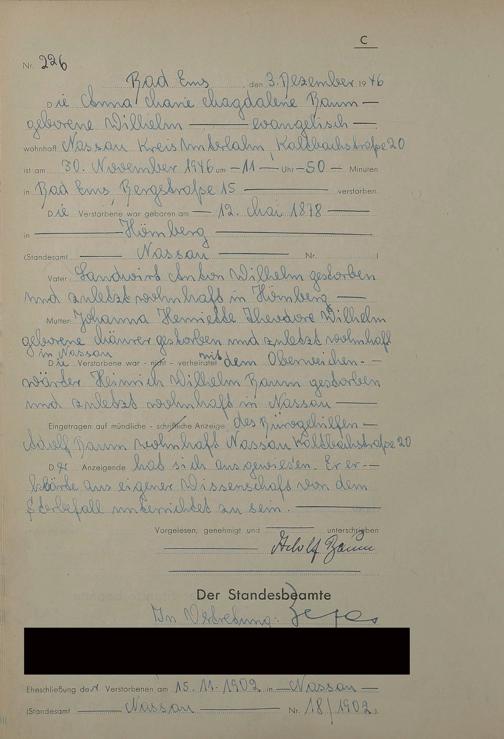 C
Nr. 226
Bad Ems den 3. Dezember 1946
Die Anna Marie Magdalene Baum
geborene Wilhelm evangelisch
wohnhaft Nassau Kreis Unterlahn Kaltbachstraße 20
ist am 30. November 1946 um 11 Uhr 50 Minuten
in Bad Ems, Bergstraße 15 verstorben.
Die Verstorbene war geboren am 12. Mai 1878
in Hömberg
(Standesamt Nassau Nr. )
Vater: Landwirt Anton Wilhelm gestorben
und zuletzt wohnhaft in Hömberg
Mutter: Johanna Henriette Theodore Wilhelm
geborene gestorben und zuletzt wohnhaft
in Nassau
Die Verstorbene war - nicht - verheiratet mit dem Oberweichen-
wärter Heinrich Wilhelm Baum gestorben
und zuletzt wohnhaft in Nassau
Eingetragen auf mündliche - schriftliche Anzeige des Bürogehilfen
Adolf Baum wohnhaft Nassau Kaltbachstraße 20
Der Anzeigende hat sich ausgewiesen. Er er-
klärte aus eigener Wissenschaft von dem
Sterbefall unterrichtet zu sein.
Vorgelesen, genehmigt und unterschrieben
Adolf Baum
Der Standesbeamte
In Vertretung:
Eheschließung der Verstorbenen am 15.11.1902 in Nassau
(Standesamt Nassau Nr. 18/1902)